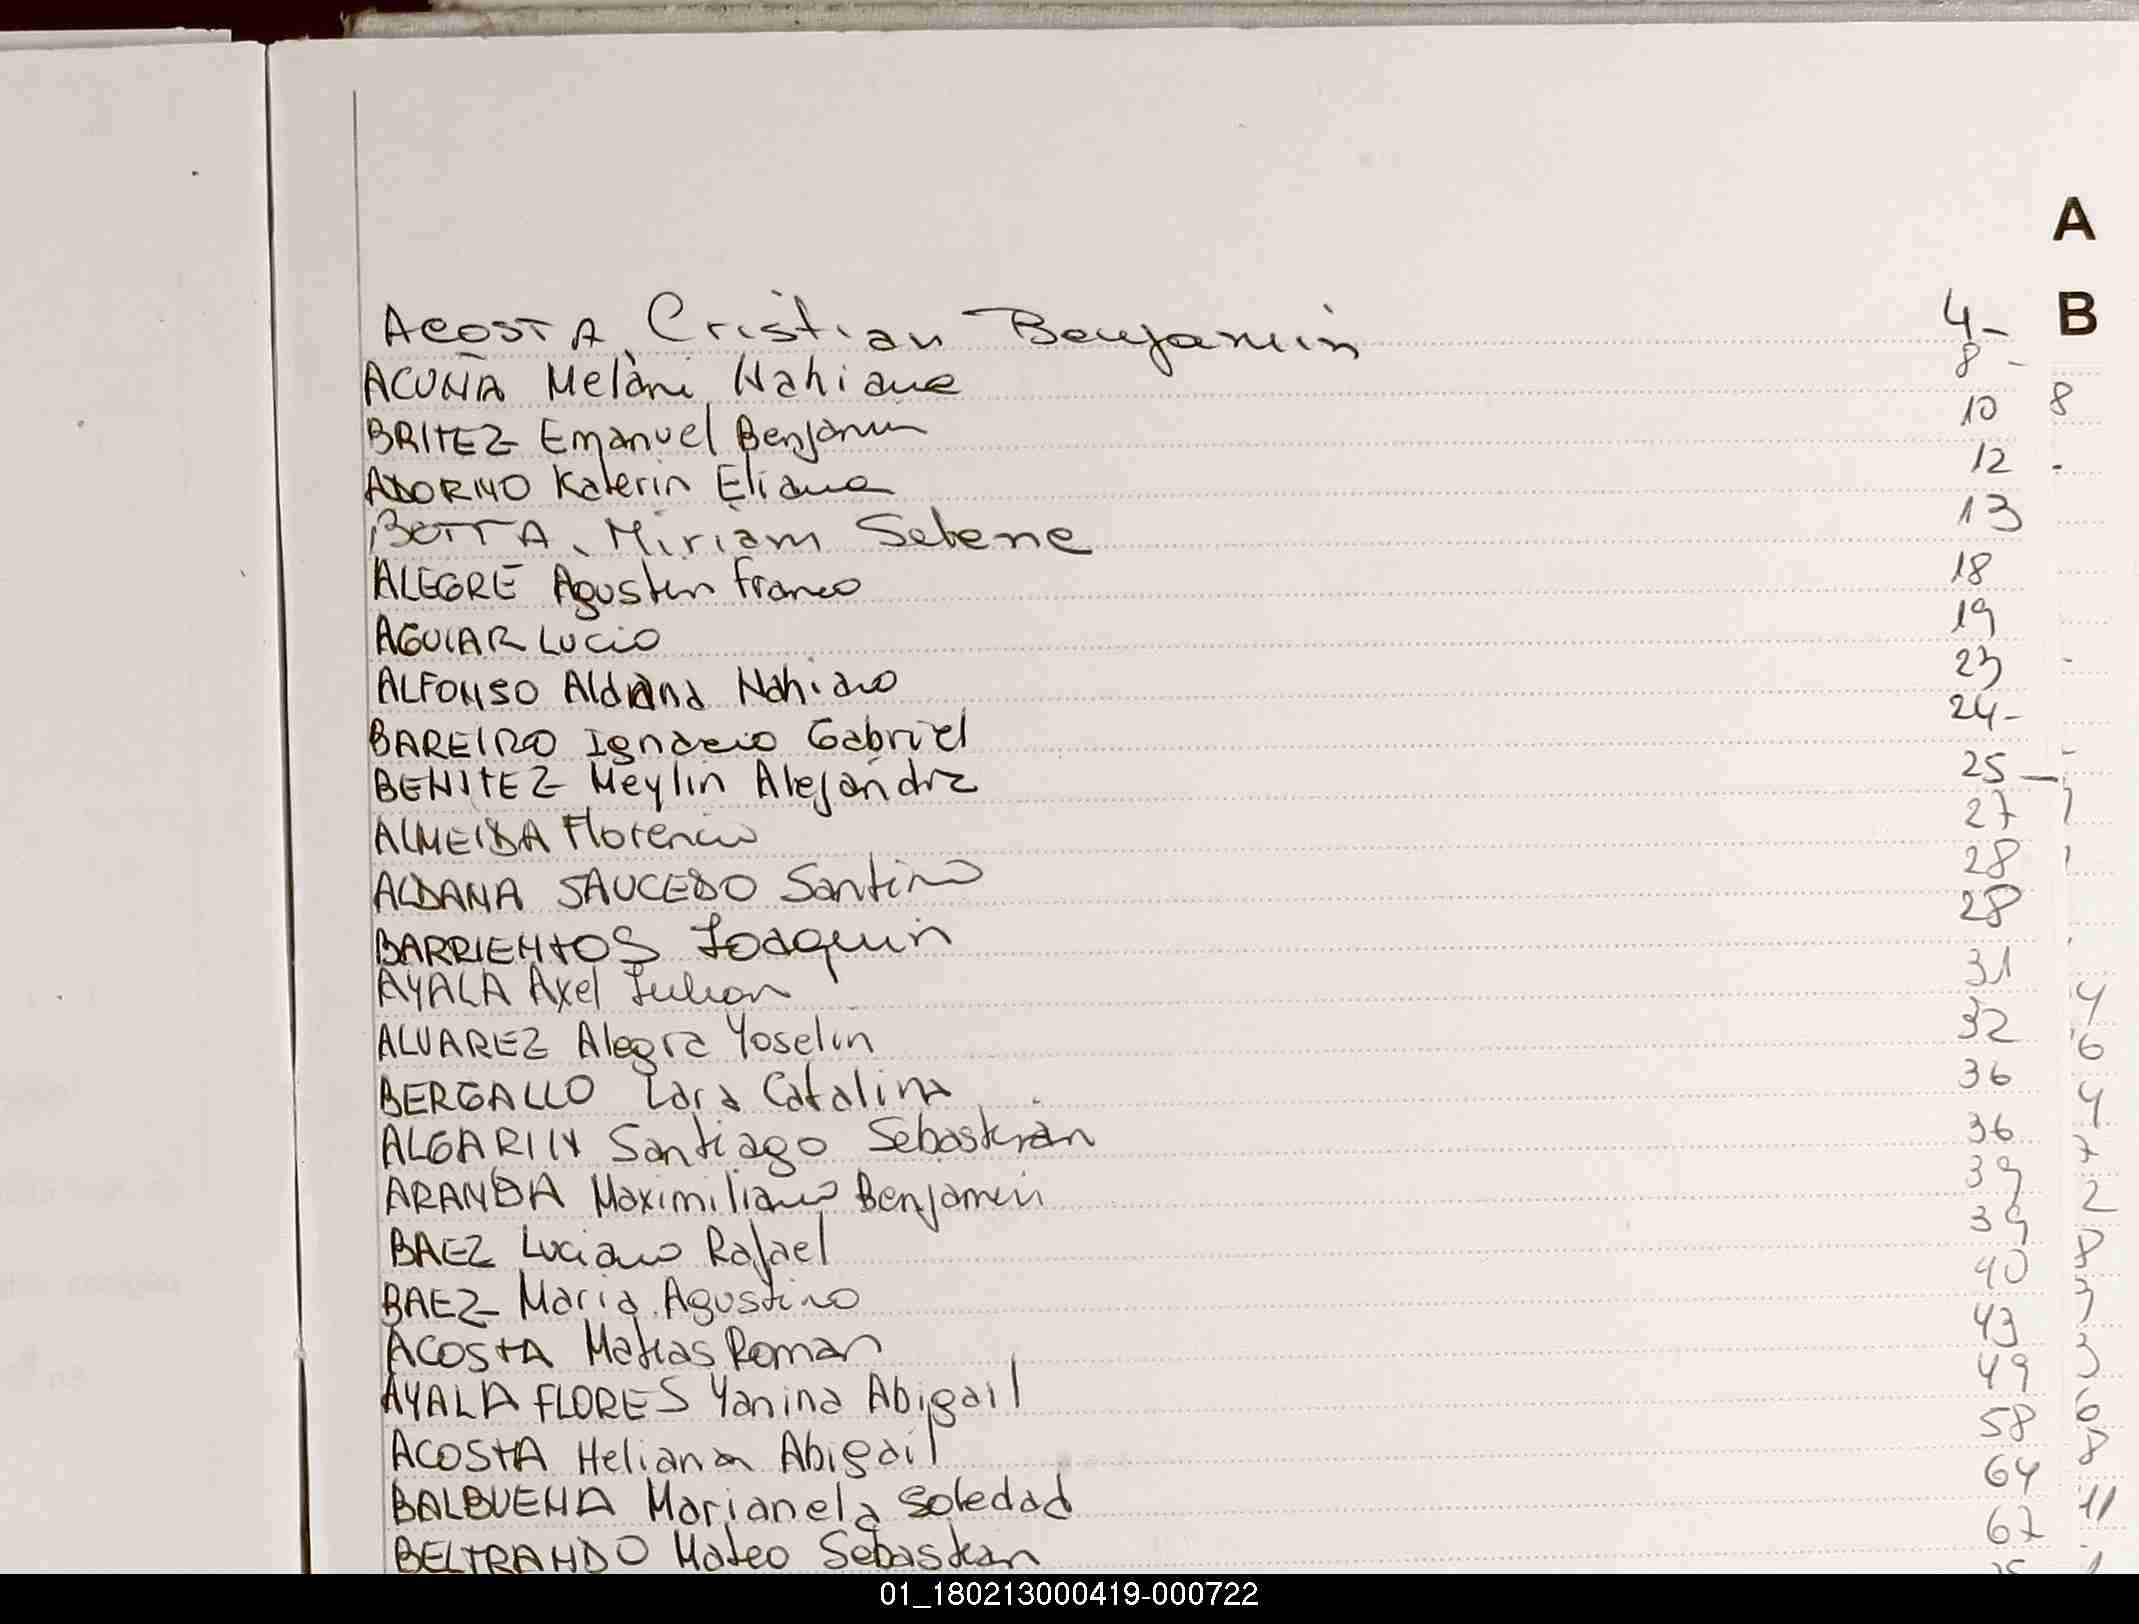 A
ACOSTA, Cristian Benjamin 4- B
ACUÑA Melani Nahiane 8 -
BRITEZ Emanuel Benjamin 10 8
ADORNO Katerin Eliana 12
BOTTA, Miriam Selene 13
ALEGRE Agustin Franco 18
AGUIAR Lucio 19
23
ALFONSO Nahiara
BAREIRO Ignacio Gabriel 24-
BENITEZ Meylin Alejandra 25
ALMEIDA Florencia 27
ALDANA SAUCEDO Santino 28
BARRIENTOS Joaquin 28
AYALA Axel Julian 31
ALVAREZ Alegra Yoselin 32 4
BERGALLO Lara Catalina 36 6
ALGARIN Santiago Sebastian 36 4
ARANDA Maximiliano Benjamin 39 7
BAEZ Luciano Rafael 39 2
BAEZ Maria Agustina 40 8
ACOSTA Matias Roman 43 3
AYALA FLORES Yanina Abigail 49 3
ACOSTA Heliana Abigail 58 6
BALBUENA Marianela Soledad 64 8
BELTRANDO Mateo Sebastian 67 11
01_180213000419-000722